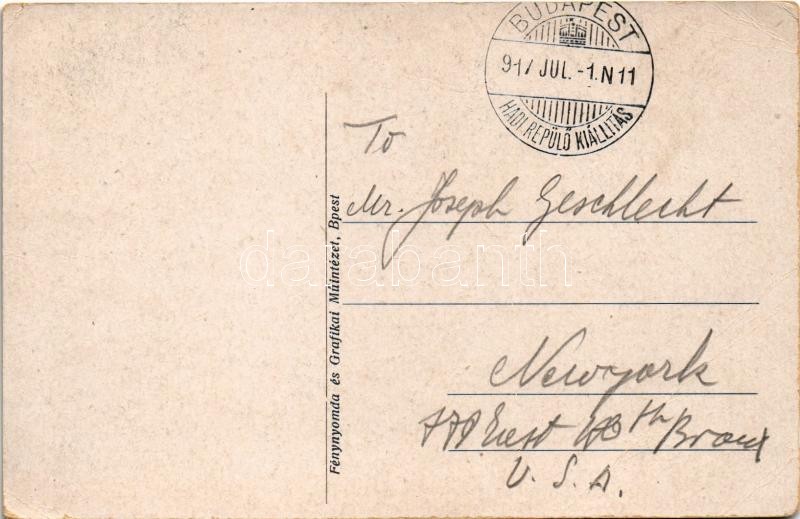 BUDAPEST
917 JUL. -1. N 11
HADI REPÜLŐ KIÁLLITÁS
To
Mr. Joseph Geschlecht
Newyork
East Bronx
U. S. A.
Fénynyomda és Grafikai Műintézet, Bpest
darabanth